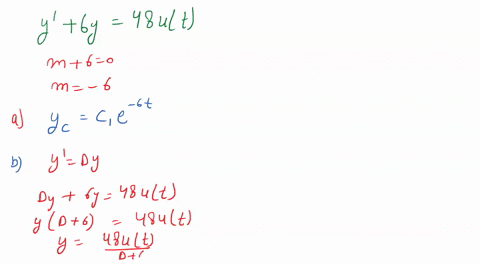 y' + 6y = 48u(t)
m + 6 = 0
m = -6
a) y_c = c_1 e^{-6t}
b) y' = Dy
Dy + 6y = 48u(t)
y(D+6) = 48u(t)
y = 48u(t)
D+6